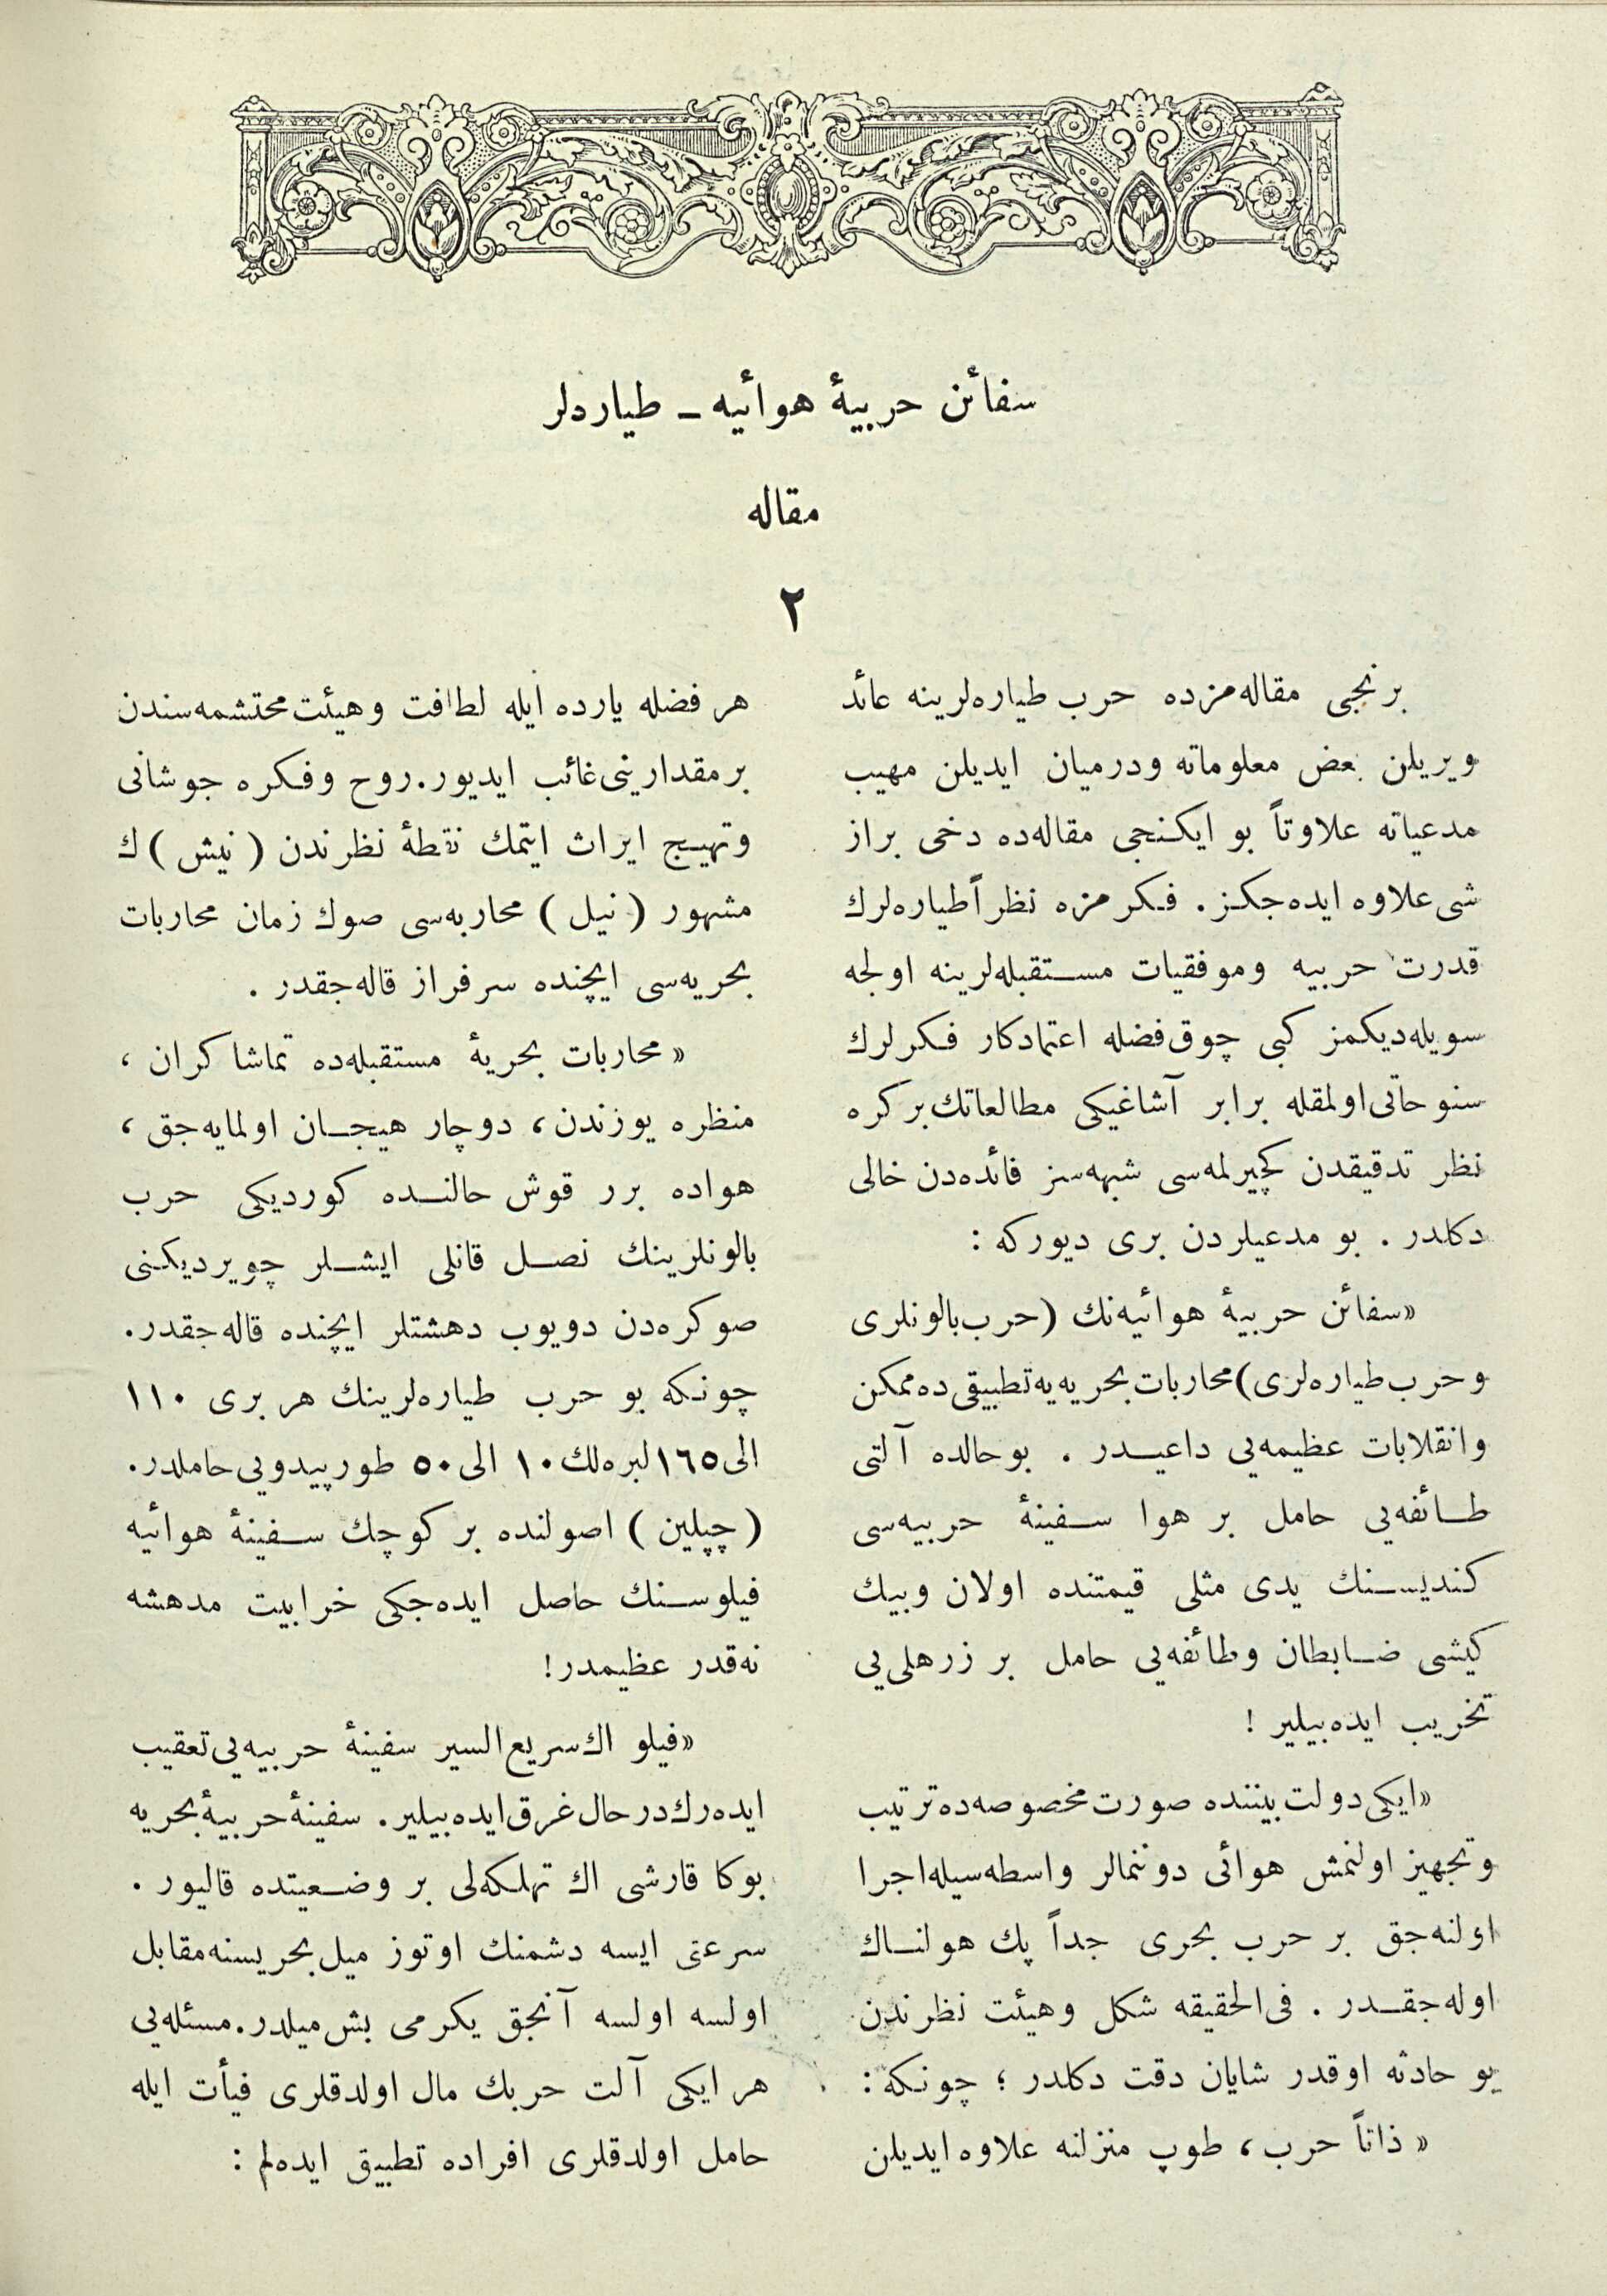 سفائن حربیهٔ هوائیه ـ طیاردلر
مقاله
٢
برنجی مقاله‌مزده حرب طیاره‌لرینه عائد
ویریلن بعض معلوماته ودرمیان ایدیلن مهیب
مدعیاته علاوتاً بو ایكنجی مقاله‌ده دخی براز
شی علاوه ایده‌جكز . فكرمزه نظراً طیاره‌لرك
قدرت حربیه وموفقیات مستقبله‌لرینه اولجه
سویله‌دیكمز كبی چوق فضله اعتمادكار فكرلرك
سنوحاتی اولمقله برابر آشاغیكی مطالعاتك بركره
نظر تدقیقدن كچیرلمه‌سی شبهه‌سز فائده‌دن خالی
دكلدر . بو مدعیلردن بری دیوركه :
«سفائن حربیهٔ هوائیه‌نك (حرب بالونلری
وحرب طیاره‌لری) محاربات بحریه‌یه تطبیقی ده ممكن
وانقلابات عظیمه‌یی داعیدر . بوحالده آلتی
طائفه‌یی حامل بر هوا سفینهٔ حربیه‌سی
كندیسنك یدی مثلی قیمتنده اولان وبیك
كیشی ضابطان وطائفه‌یی حامل بر زرهلی‌یی
تخریب ایده‌بیلیر !
«ایكی دولت بیننده صورت مخصوصه‌ده ترتیب
وتجهیز اولنمش هوائی دوننمالر واسطه‌سیله اجرا
اولنه‌جق بر حرب بحری جداً پك هولناك
اوله‌جقدر . فی‌الحقیقه شكل وهیئت نظرندن
بو حادثه اوقدر شایان دقت دكلدر ؛ چونكه :
« ذاتاً حرب ، طوپ منزلنه علاوه ایدیلن
هر فضله یارده ایله لطافت وهیئت محتشمه‌سندن
برمقدارینی غائب ایدیور. روح وفكره جوشانی
وتهیج ایراث ایتمك نقطهٔ نظرندن ( نیش ) ك
مشهور ( نیل ) محاربه‌سی صوك زمان محاربات
بحریه‌سی ایچنده سرفراز قاله‌جقدر .
« محاربات بحریهٔ مستقبله‌ده تماشاكران ،
منظره یوزندن ، دوچار هیجان اولمایه‌جق ،
هواده برر قوش حالنده كوردیكی حرب
بالونلرینك نصل قانلی ایشلر چویردیكنی
صوكره‌دن دویوب دهشتلر ایچنده قاله‌جقدر.
چونكه بو حرب طیاره‌لرینك هر بری ١١٠
الی ١٦٥ لبره‌لك ١٠ الی ٥٠ طورپیدویی حاملدر.
( چپلین ) اصولنده بر كوچك سفینهٔ هوائیه
فیلوسنك حاصل ایده‌جكی خرابیت مدهشه
نه‌قدر عظیمدر!
«فیلو اك سریع السیر سفینهٔ حربیه‌یی تعقیب
ایده‌رك درحال غرق ایده‌بیلیر. سفینهٔ حربیهٔ بحریه
بوكا قارشی اك تهلكه‌لی بر وضعیتده قالیور .
سرعتی ایسه دشمنك اوتوز میل بحریسنه مقابل
اولسه اولسه آنجق یكرمی بش میلدر. مسئله‌یی
هر ایكی آلت حربك مال اولدقلری فیأت ایله
حامل اولدقلری افراده تطبیق ایده‌لم :